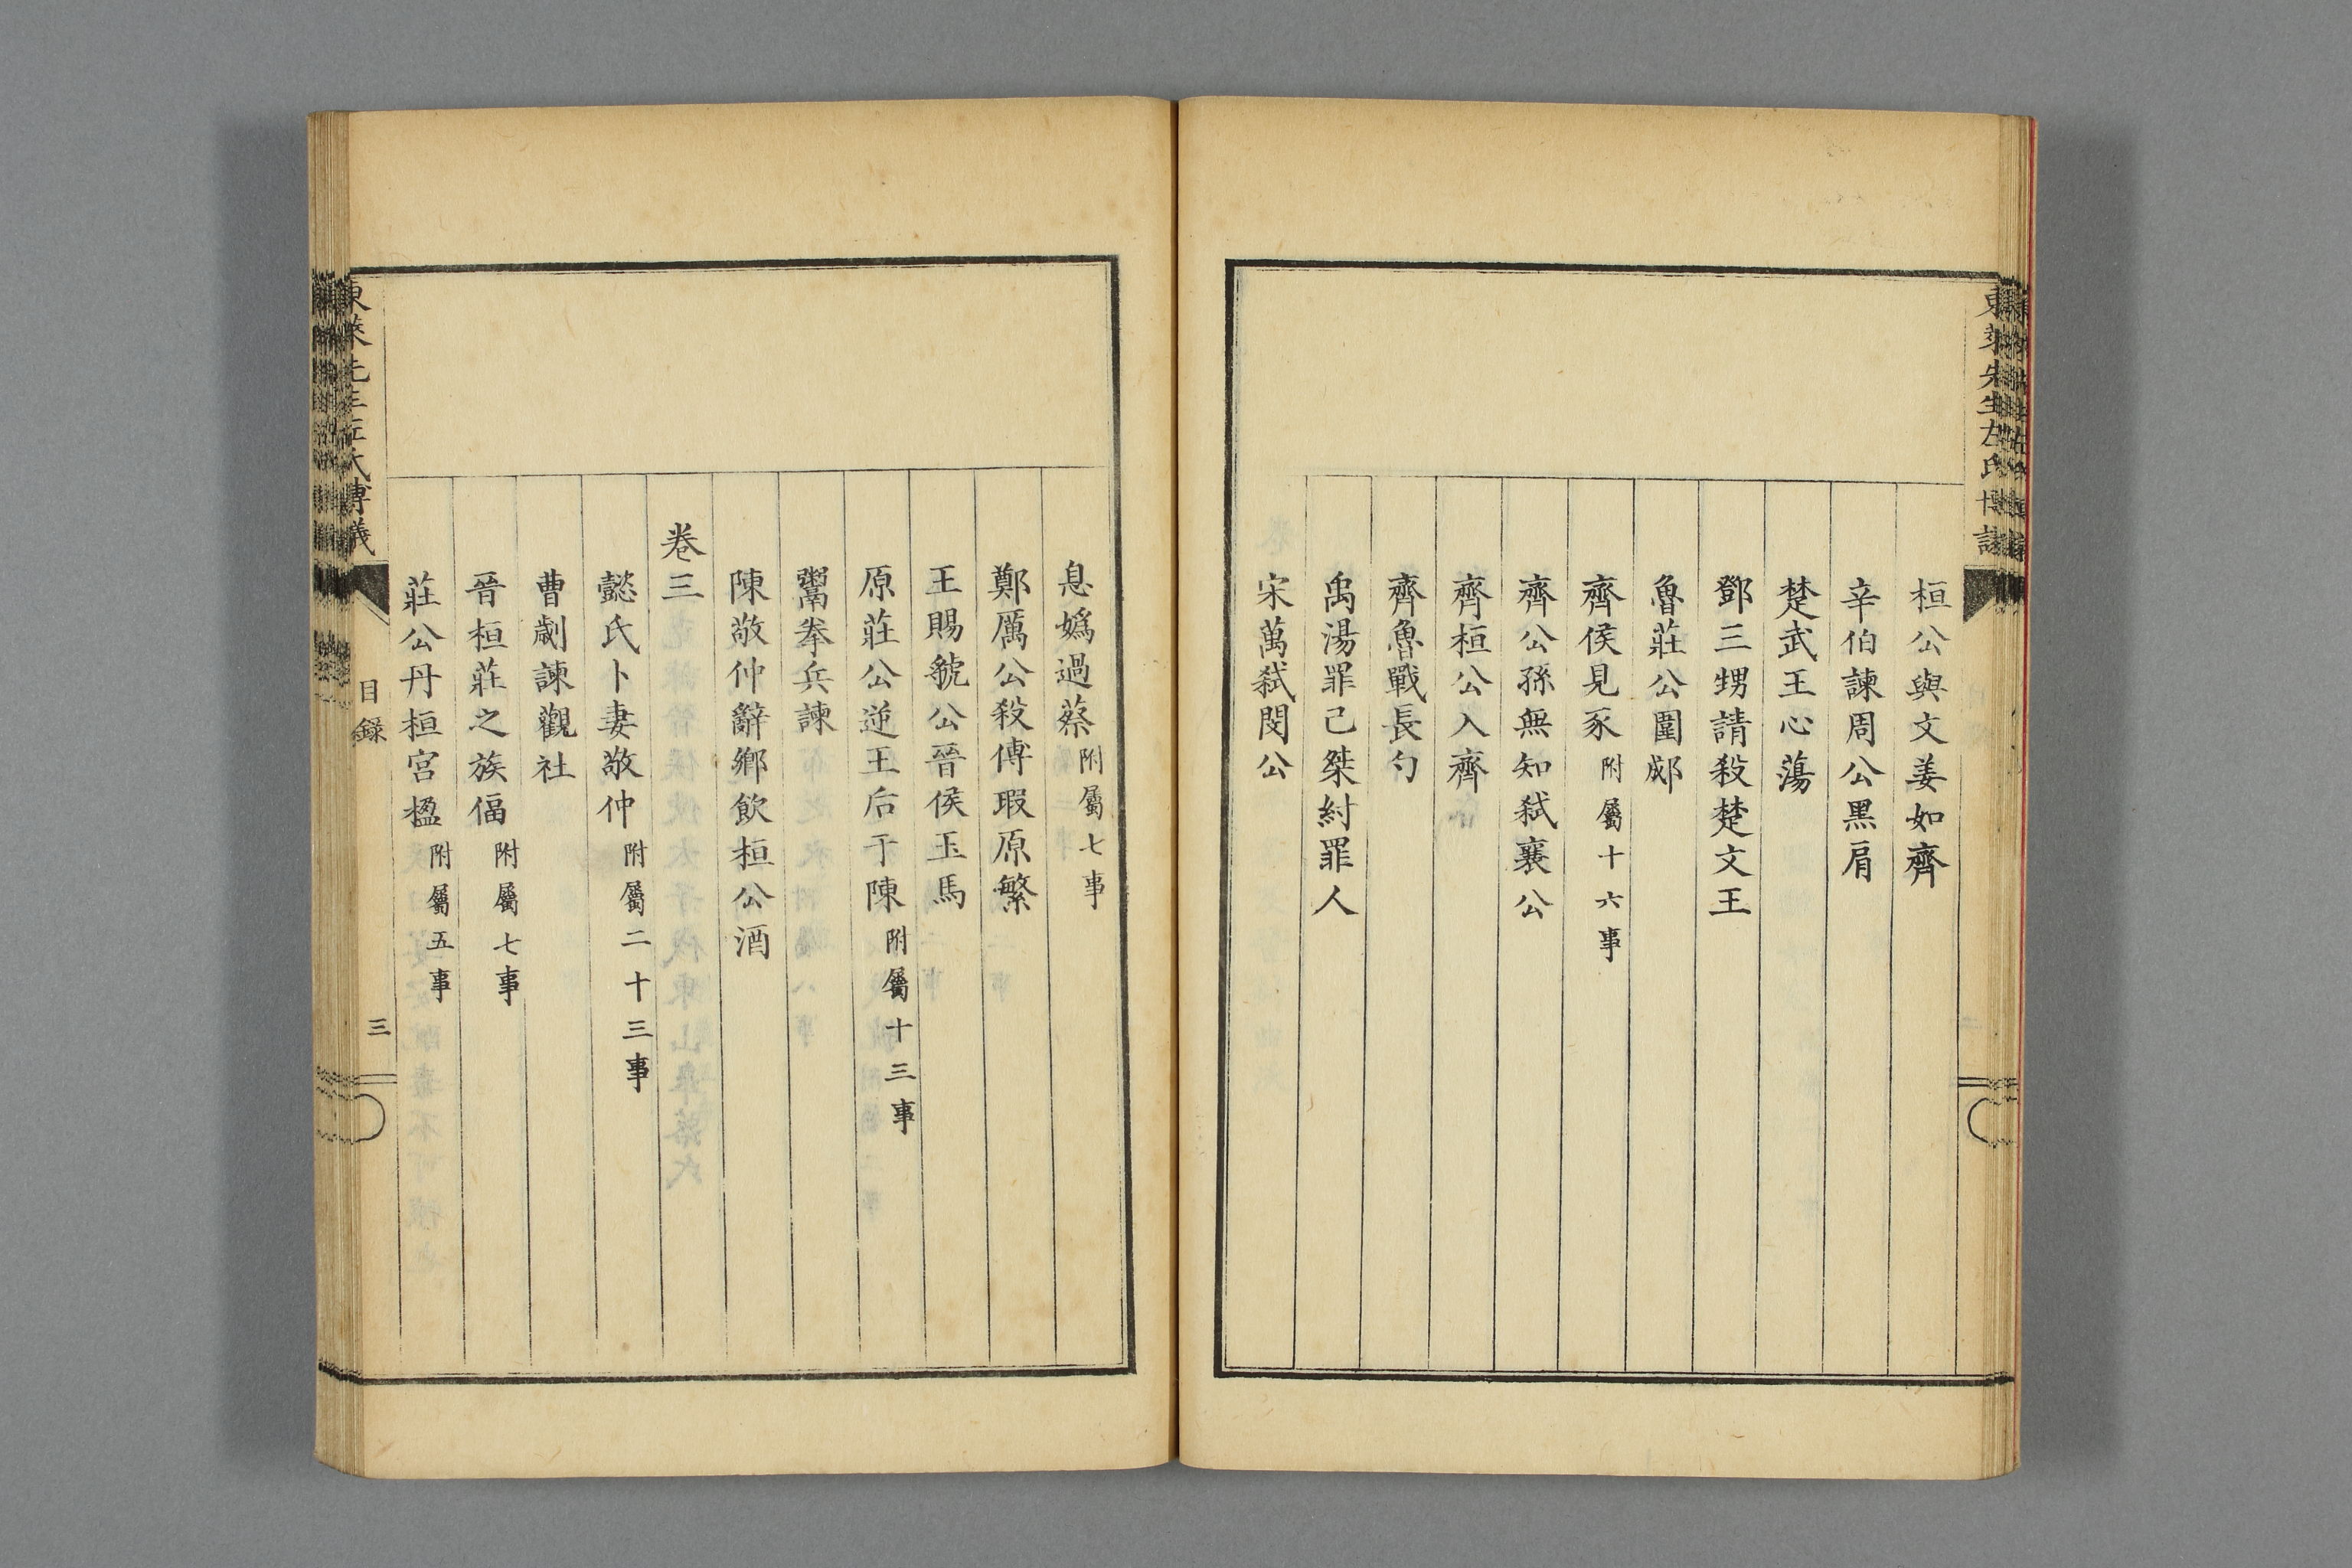 東萊先生左氏博議
桓公與文姜如齊
辛伯諫周公黑肩
楚武王心蕩
鄧三甥請殺楚文王
魯莊公圍郕
齊侯見豕附屬十六事
齊公孫無知弑襄公
齊桓公入齊
齊魯戰長勺
禹湯罪己桀紂罪人
宋萬弑閔公
息嬀過蔡附屬七事
鄭厲公殺傅瑕原繁
王賜虢公晉侯玉馬
原莊公逆王后于陳附屬十三事
鬻拳兵諫
陳敬仲辭鄉飲桓公酒
卷三
懿氏卜妻敬仲附屬二十三事
曹劌諫觀社
晉桓莊之族偪附屬七事
莊公丹桓宮楹附屬五事
東萊先生左氏博議
目録
三